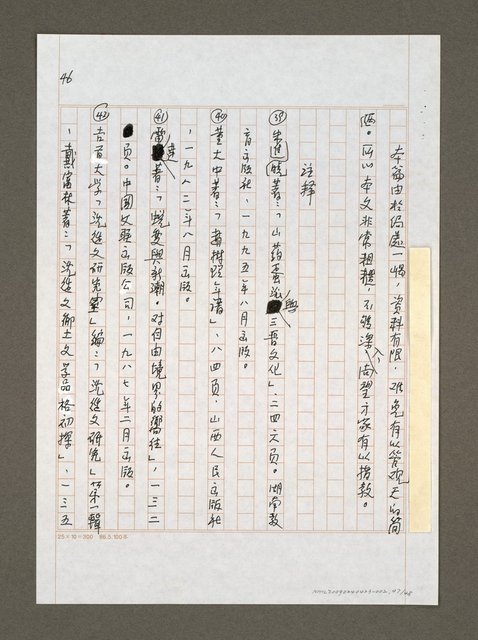 46
本節由於偏處一隅，資料有限，难免有以管观天的簡
陋。所以本文非常粗糙，不夠深入，尚望方家有以指教。
註释
㊴朱進 著：「山药蛋派與三晋文化」、二四六頁。湖南教
育出版社、一九九五年八月出版。
㊵董大中著：「趙樹理年譜」、八四頁，山西人民出版社
、一九八二年八月出版。
㊶雷達著：「蛻变與新潮。对自由境界的嚮往」，一三二
頁。中國文聯出版公司，一九八七年二月出版。
㊷吉首大学「沈從文研究室」編：「沈從文研究」第一輯
、戴富林著：「沈從文鄉土文学品格初探」、一三五
25×10=300 86.5.100本
NML20090240423-002, 47/48